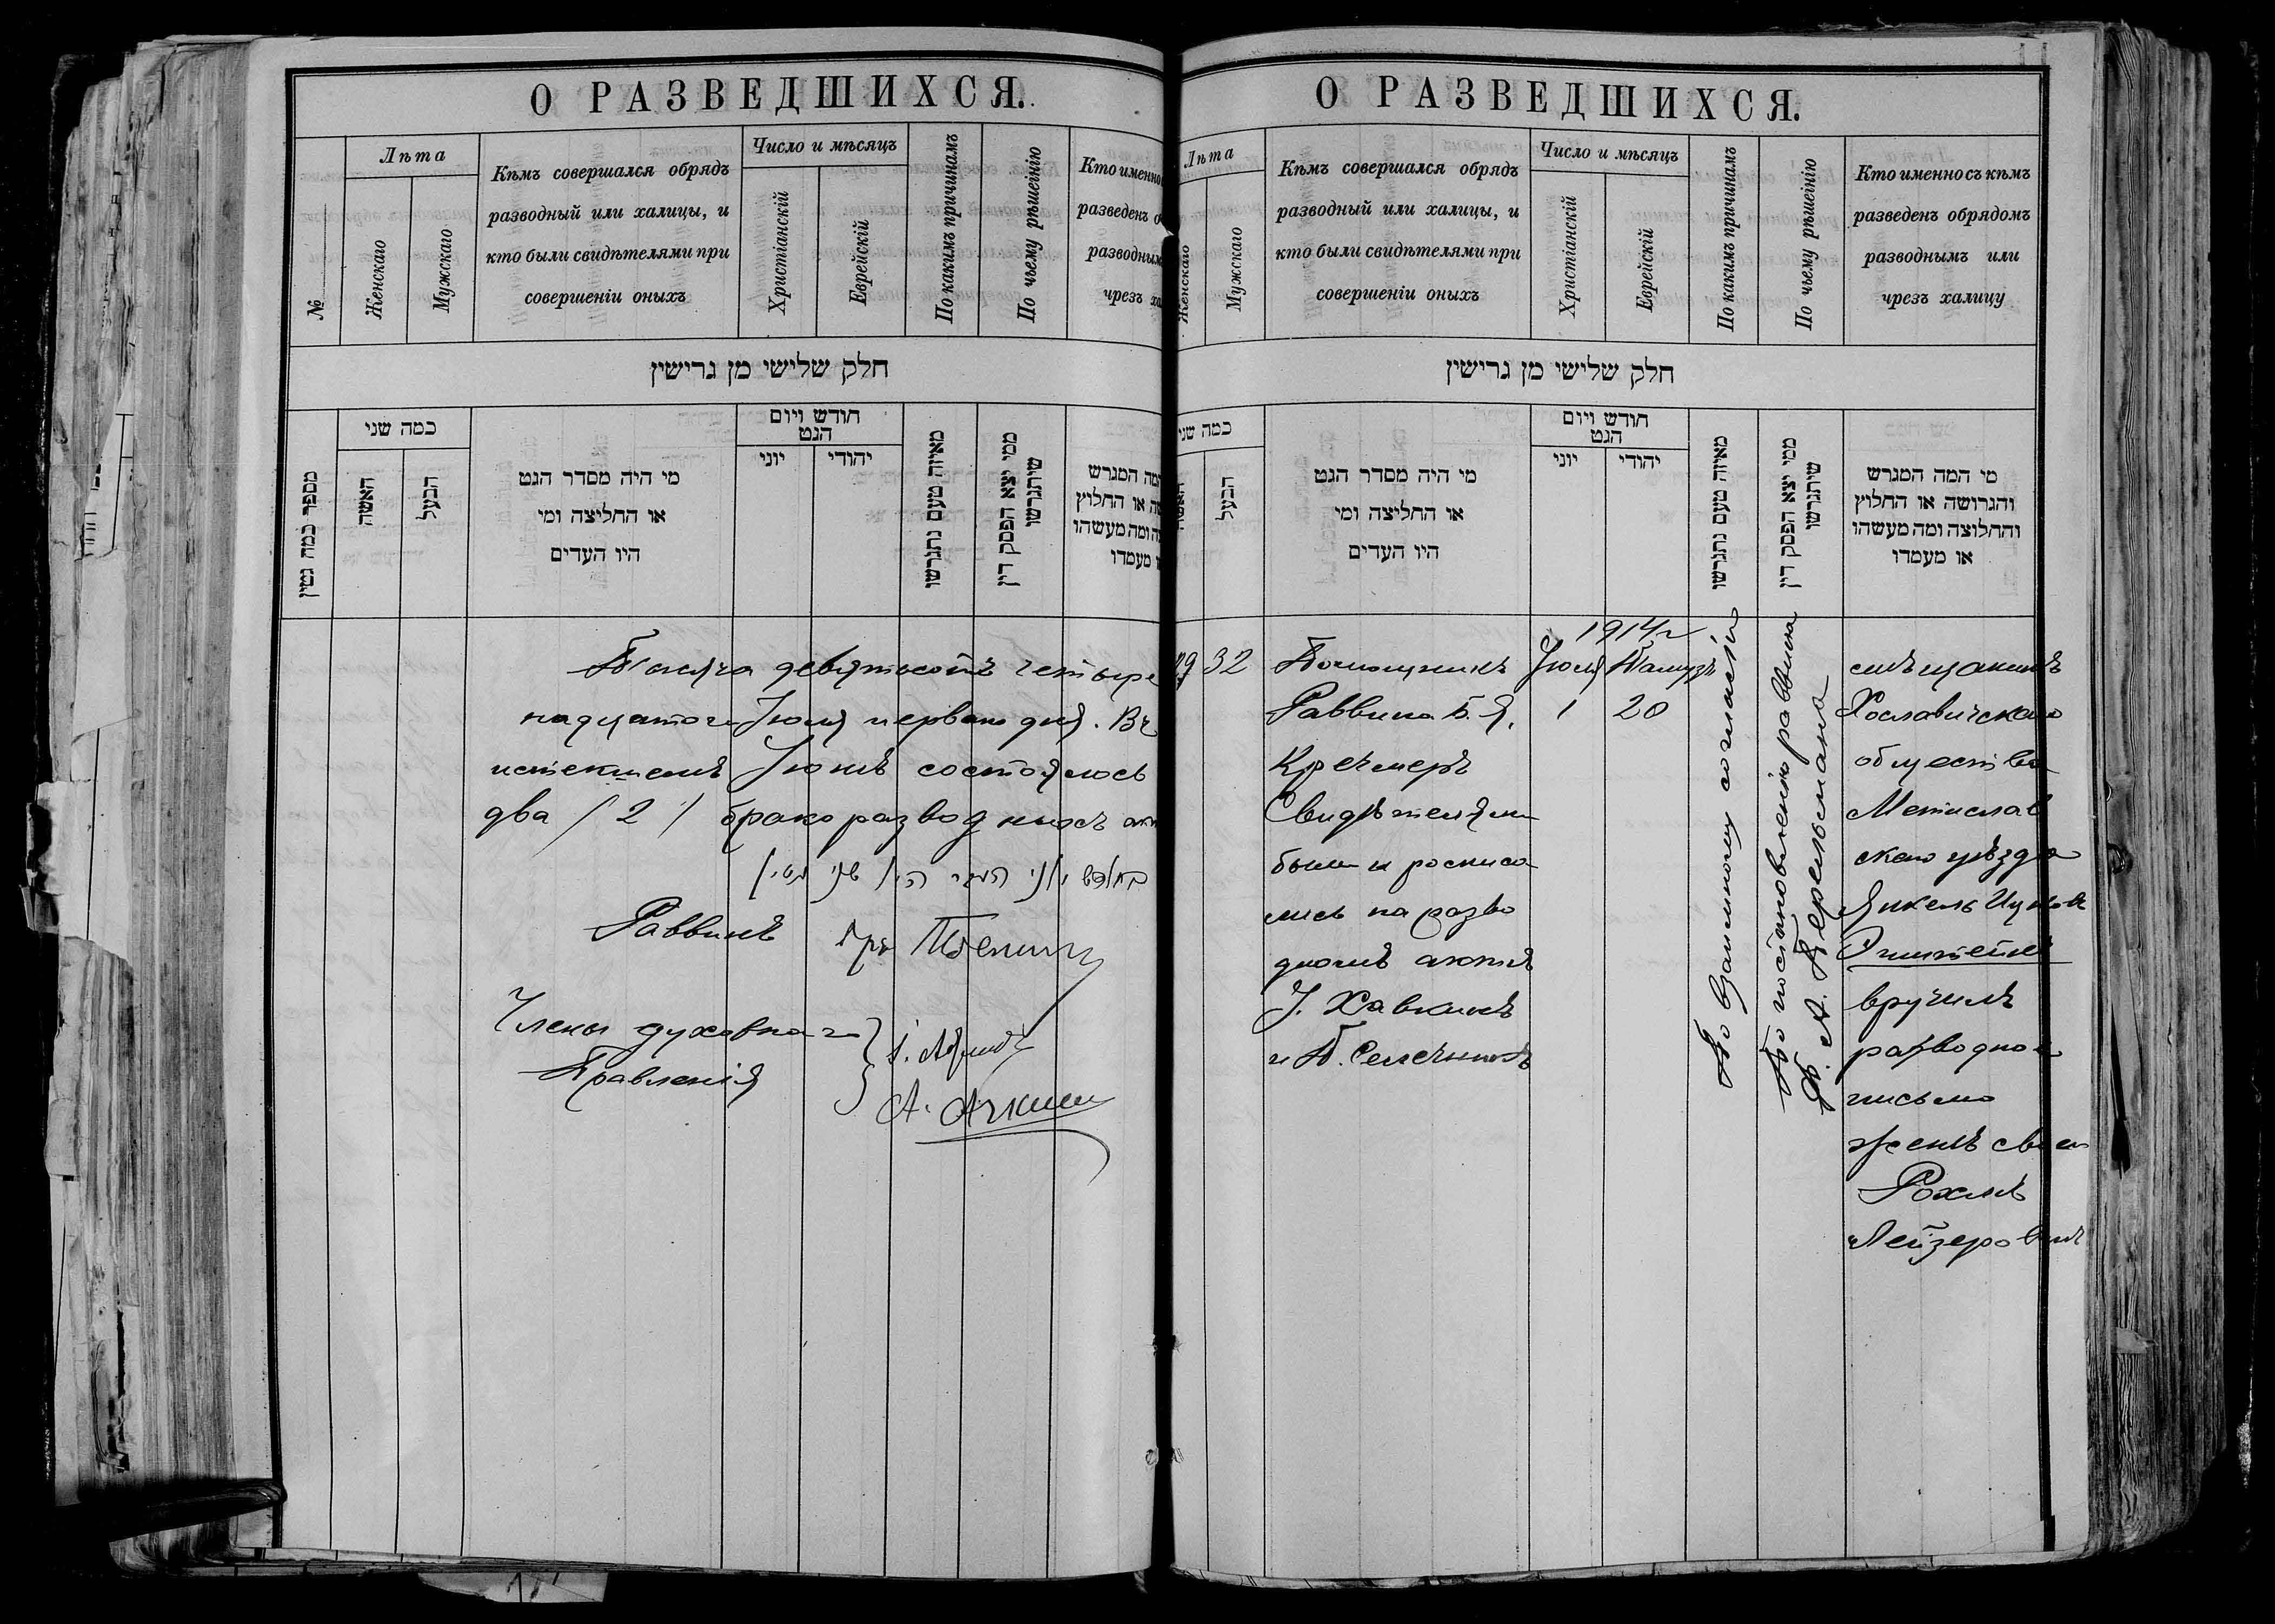 О РАЗВЕДШИХСЯ.
№
Лѣта
Женскаго
Мужскаго
Кѣмъ совершался обрядъ
разводный или халицы, и
кто были свидѣтелями при
совершеніи оныхъ
Число и мѣсяцъ
Христіанскій
Еврейскій
По какимъ причинамъ
По чьему рѣшенію
Кто именно
разведенъ о
разводным
чрезъ ха
חלק שלישי מן גרישין
מספר כמה גטין
כמה שני
האשה
הבעל
מי היה מסדר הגט
או החליצה ומי
היו העדים
חודש ויום
הגט
יוני
יהודי
מאיזה טעם נתגרשו
ממי יצא הפסק דין
שיתגרשו
המה המגרש
שה או החלוץ
צה ומה מעשהו
או מעמדו
Тысяча девятьсотъ четыре
надцатаго Іюля перваго дня. Въ
истекшемъ Іюнѣ состоялось
два / 2 / бракоразводныхъ акт
בחודש יוני העבר היו שני גטין
Раввинъ
Члены духовнаго
Правленія
А. Аскин
О РАЗВЕДШИХСЯ.
Лѣта
Женскаго
Мужскаго
Кѣмъ совершался обрядъ
разводный или халицы, и
кто были свидѣтелями при
совершеніи оныхъ
Число и мѣсяцъ
Христіанскій
Еврейскій
По какимъ причинамъ
По чьему рѣшенію
Кто именно съ кѣмъ
разведенъ обрядомъ
разводнымъ или
чрезъ халицу
חלק שלישי מן גרישין
כמה שני
האשה
הבעל
מי היה מסדר הגט
או החליצה ומי
היו העדים
חודש ויום
הגט
יוני
יהודי
מאיזה טעם נתגרשו
ממי יצא הפסק דין
שיתגרשו
מי המה המגרש
והגרושה או החלוץ
והחלוצה ומה מעשהו
או מעמדו
29
32
Помощникъ
Раввина Б. Я.
Кречмеръ
Свидѣтелями
были и росписа
лись на разво
дномъ актѣ
І. Хавкинъ
и
1914 г
Іюля Тамузъ
1 20
По взаимному согласію
По постановленію раввина
А. Перельмана
мѣщанинъ
Хославичскаго
общества
Мстислав
скаго уѣзда
Янкель Ицков
вручилъ
разводное
письмо
женѣ своей
Рохлѣ
Лейзеровнѣ